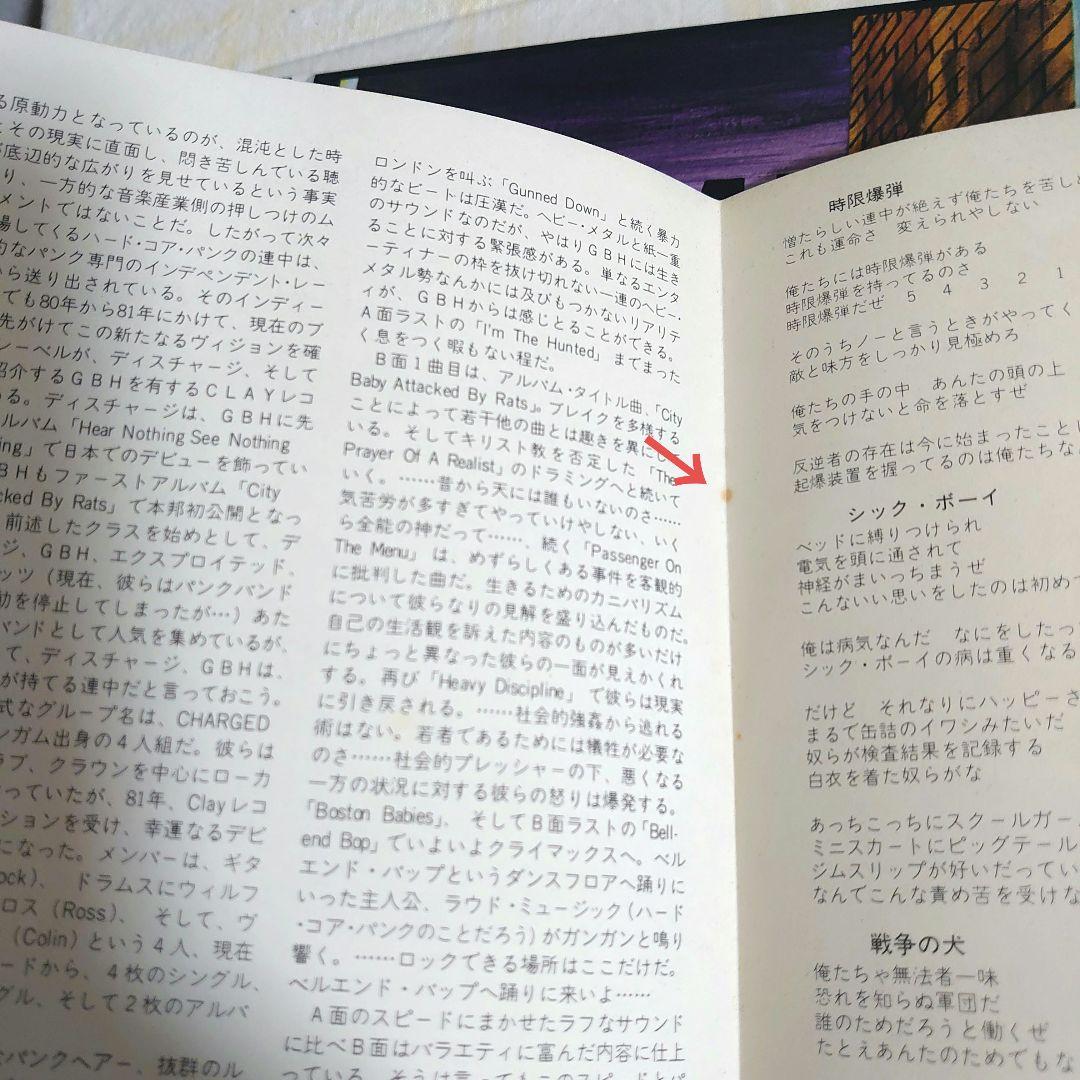 る原動力となっているのが、混沌とした時
その現実に直面し、悶き苦しんでいる聴
底辺的な広がりを見せているという事実
り、一方的な音楽産業側の押しつけのム
メントではないことだ。したがって次々
場してくるハード・コア・パンクの連中は、
的なパンク専門のインデペンデント・レー
から送り出されている。そのインディー
ても80年から81年にかけて、現在のブ
先がけてこの新たなるヴィジョンを確
レーベルが、ディスチャージ、そして
紹介するGBHを有するCLAYレコ
る。ディスチャージは、GBHに先
ルバム「Hear Nothing See Nothing
ing」で日本でのデビューを飾ってい
BHもファーストアルバム「City
cked By Rats」で本邦初公開となっ
前述したクラスを始めとして、デ
ジ、GBH、エクスプロイテッド、
ッツ(現在、彼らはパンクバンド
動を停止してしまったが…)あた
バンドとして人気を集めているが、
て、ディスチャージ、GBHは、
が持てる連中だと言っておこう。
式なグループ名は、CHARGED
ンガム出身の4人組だ。彼らは
ラブ、クラウンを中心にローカ
なっていたが、81年、Clayレコ
ションを受け、幸運なるデビ
になった。メンバーは、ギタ
ock)、ドラムスにウィルフ
ロス(Ross)、そして、ヴ
(Colin)という4人、現在
ードから、4枚のシングル、
グル、そして2枚のアルバ
パンクヘアー、抜群のル
ロンドンを叫ぶ「Gunned Down」と続く暴力
的なビートは圧漢だ。ヘビー・メタルと紙一重
のサウンドなのだが、やはりGBHには生き
ることに対する緊張感がある。単なるエンタ
ーティナーの枠を抜け切れない一連のヘビー・
メタル勢なんかには及びもつかないリアリテ
ィが、GBHからは感じとることができる。
A面ラストの「I'm The Hunted」までまった
く息をつく暇もない程だ。
B面1曲目は、アルバム・タイトル曲、「City
Baby Attacked By Rats」。ブレイクを多様する
ことによって若干他の曲とは趣きを異にして
いる。そしてキリスト教を否定した「The
Prayer Of A Realist」のドラミングへと続いて
いく。……昔から天には誰もいないのさ……
気苦労が多すぎてやっていけやしない、いく
ら全能の神だって……、続く「Passenger On
The Menu」は、めずらしくある事件を客観的
に批判した曲だ。生きるためのカニバリズム
について彼らなりの見解を盛り込んだものだ。
自己の生活観を訴えた内容のものが多いだけ
にちょっと異なった彼らの一面が見えかくれ
する。再び「Heavy Discipline」で彼らは現実
に引き戻される。……社会的強姦から逃れる
術はない。若者であるためには犠牲が必要な
のさ……社会的プレッシャーの下、悪くなる
一方の状況に対する彼らの怒りは爆発する。
「Boston Babies」、そしてB面ラストの「Bell-
end Bop」でいよいよクライマックスへ。ベル
エンド・バップというダンスフロアへ踊りに
いった主人公、ラウド・ミュージック(ハード
・コア・パンクのことだろう)がガンガンと鳴り
響く。……ロックできる場所はここだけだ。
ベルエンド・バップへ踊りに来いよ……
A面のスピードにまかせたラフなサウンド
に比べB面はバラエティに富んだ内容に仕上
っている。そうは言ってもこのスピードとパ
時限爆弾
憎たらしい連中が絶えず俺たちを苦し
これも運命さ 変えられやしない
俺たちには時限爆弾がある
時限爆弾を持ってるのさ
時限爆弾だぜ 5 4 3 2 1
そのうちノーと言うときがやってく
敵と味方をしっかり見極めろ
俺たちの手の中 あんたの頭の上
気をつけないと命を落とすぜ
反逆者の存在は今に始まったこと
起爆装置を握ってるのは俺たちな
シック・ボーイ
ベッドに縛りつけられ
電気を頭に通されて
神経がまいっちまうぜ
こんないい思いをしたのは初め
俺は病気なんだ なにをしたっ
シック・ボーイの病は重くなる
だけど それなりにハッピーさ
まるで缶詰のイワシみたいだ
奴らが検査結果を記録する
白衣を着た奴らがな
あっちこっちにスクールガー
ミニスカートにピッグテール
ジムスリップが好いだってい
なんでこんな責め苦を受けな
戦争の犬
俺たちゃ無法者一味
恐れを知らぬ軍団だ
誰のためだろうと働くぜ
たとえあんたのためでもな